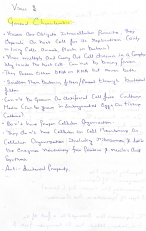 Virus
General Characteristics
Viruses Are Obligate Intracellular Parasites, They
Depends On Host Cell for its Replication (only
in living Cells Animals, Plants or Bacteria)
They multiply And Carry Out
They Possess Either DNA or RNA But Never Both.
Smallest Than Bacteria, filter/Passed through bacterial
filter.
Can't Be Grown On Artificial Cell free Culture
Media (Can be grown in Embryonated Eggs Or Tissue
Culture)
Don't have Proper Cellular Organization.
They Don't have Cellular or Cell Membrane Or
Cellular Organelles Including Ribosomes & Lack
the Enzymes Necessary for Protein & Nucleic Acid
Synthesis.
Anti-Bacterial